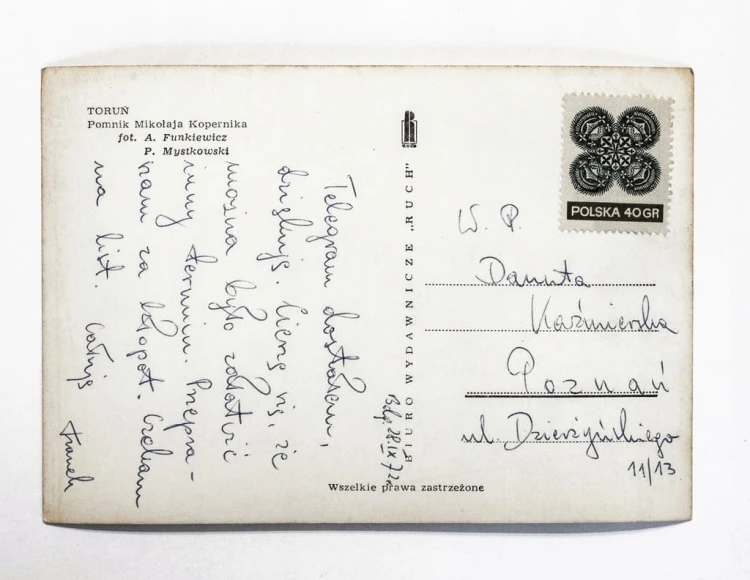 TORUŃ
Pomnik Mikołaja Kopernika
fot. A. Funkiewicz
P. Mystkowski
Bdg. 28.IX.72r
Telegram dostałem,
dziękuję. Cieszę się, że
można było załatwić
inny termin. Przepra-
szam za kłopot. Czekam
na list. Całuję
Franek
BIURO WYDAWNICZE „RUCH"
POLSKA 40GR
W. P.
Danuta
Kaźmierska
Poznań
ul. Dzierżyńskiego
11/13
Wszelkie prawa zastrzeżone